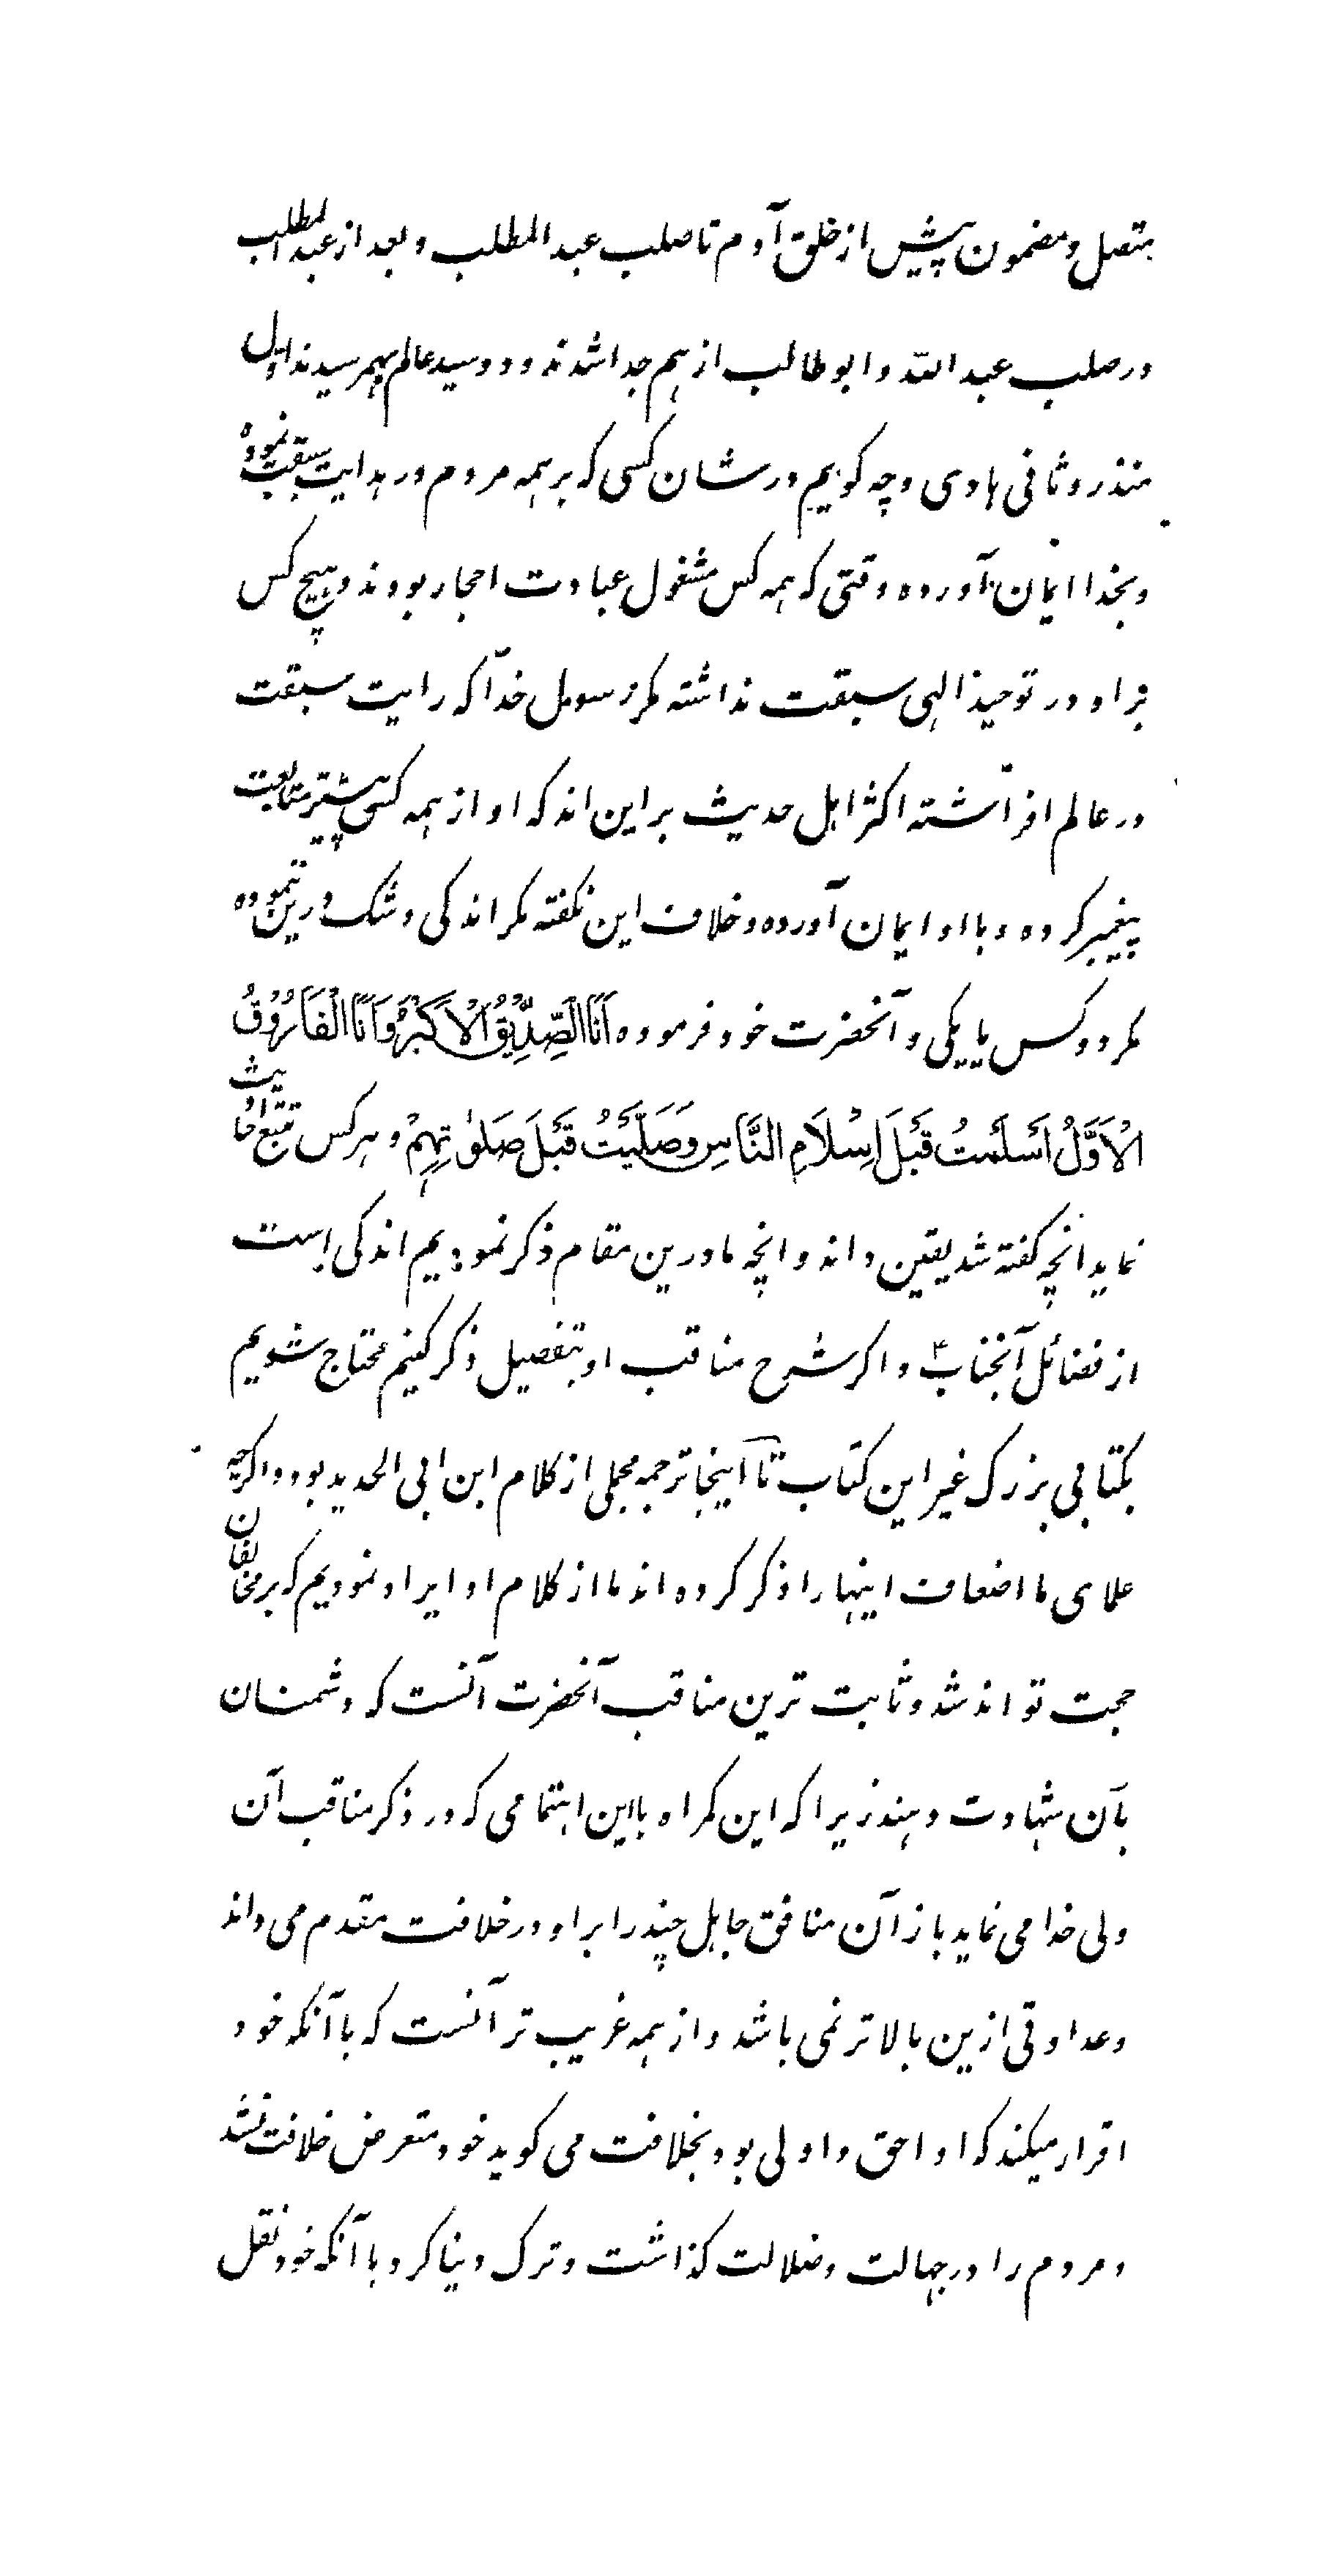 متصل و مضمون پیش از خلق آدم تا صلب عبد المطلب و بعد از عبد المطلب
در صلب عبد الله و ابو طالب از هم جدا شدند و دو سید عالم بهم رسیدند اول
منذر و ثانی هادی و چه کویم در شان کسی که بر همه مردم در هدایت سبقت نموده
و بخدا ایمان آورده وقتی که همه کس مشغول عبادت احجار بودند و هیچ کس
بر او در توحید الهی سبقت نداشته مکر رسول خدا که رایت سبقت
در عالم افراشته اکثر اهل حدیث بر این اند که او از همه کس پیشتر متابعت
پیغمبر کرده و با او ایمان آورده و خلاف این نکفته مکر اندکی و شک درین ننموده
مکر دو کس یا یکی و آنحضرت خود فرموده اَنَا الصِّدِّیْقُ الْاَکْبَرُ وَاَنَا الْفَارُوْقُ
الْاَوَّلُ اَسْلَمْتُ قَبْلَ اِسْلَامِ النَّاسِ وَصَلَّیْتُ قَبْلَ صَلٰوتِهِمْ و هر کس تتبع احادیث
نماید انچه کفته شد یقین داند و انچه ما درین مقام ذکر نمودیم اندکی است
از فضائل آنجناب و اکر شرح مناقب او بتفصیل ذکر کنیم محتاج شویم
بکتابی بزرک غیر این کتاب تا اینجا ترجمه مجملی از کلام ابن ابی الحدید بود و اکرچه
علمای ما اضعاف اینها را ذکر کرده اند ما از کلام او ایراد نمودیم که بر مخالفان
حجت تواند شد و ثابت ترین مناقب آنحضرت آنست که دشمنان
بآن شهادت دهند زیرا که این کمراه با این اهتمامی که در ذکر مناقب آن
ولی خدا می نماید باز آن منافق جاهل چند را بر او در خلافت مقدم می داند
و عداوتی ازین بالاتر نمی باشد و از همه غریب تر آنست که با آنکه خود
اقرار میکند که او احق و اولی بود بخلافت می کوید خود متعرض خلافت نشد
و مردم را در جهالت و ضلالت کذاشت و ترک دنیا کرد با آنکه خود نقل